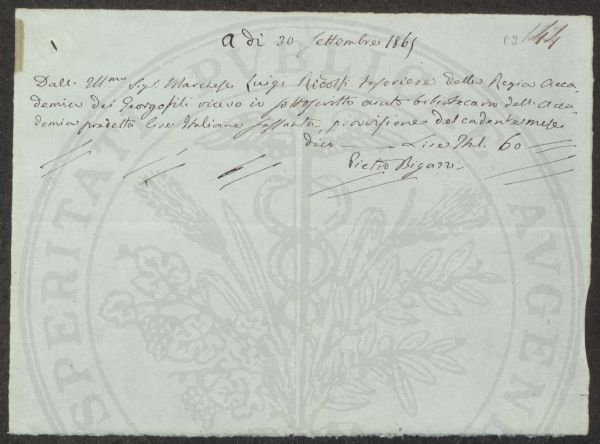 A dì 30 Settembre 1865
144
Dall' Ill.mo Sig.r Marchese Luigi Ridolfi tesoriere della Regia Acca-
demia dei Georgofili ricevo io sottoscritto aiuto bibliotecario dell' Acca-
demia predetta Lire Italiane sessanta, provvisione del cadente mese
dico Lire Ital. 60
Pietro Bigazzi
PROSPERITATI PUBLICAE AUGENDAE